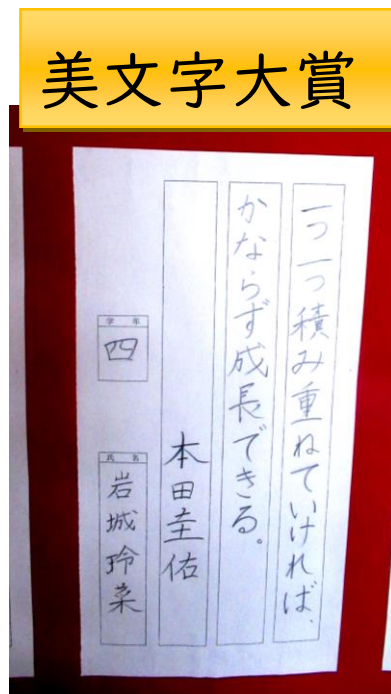 美文字大賞
一つ一つ積み重ねていければ、
かならず成長できる。
本田圭佑
学年
四
氏名
岩城玲菜